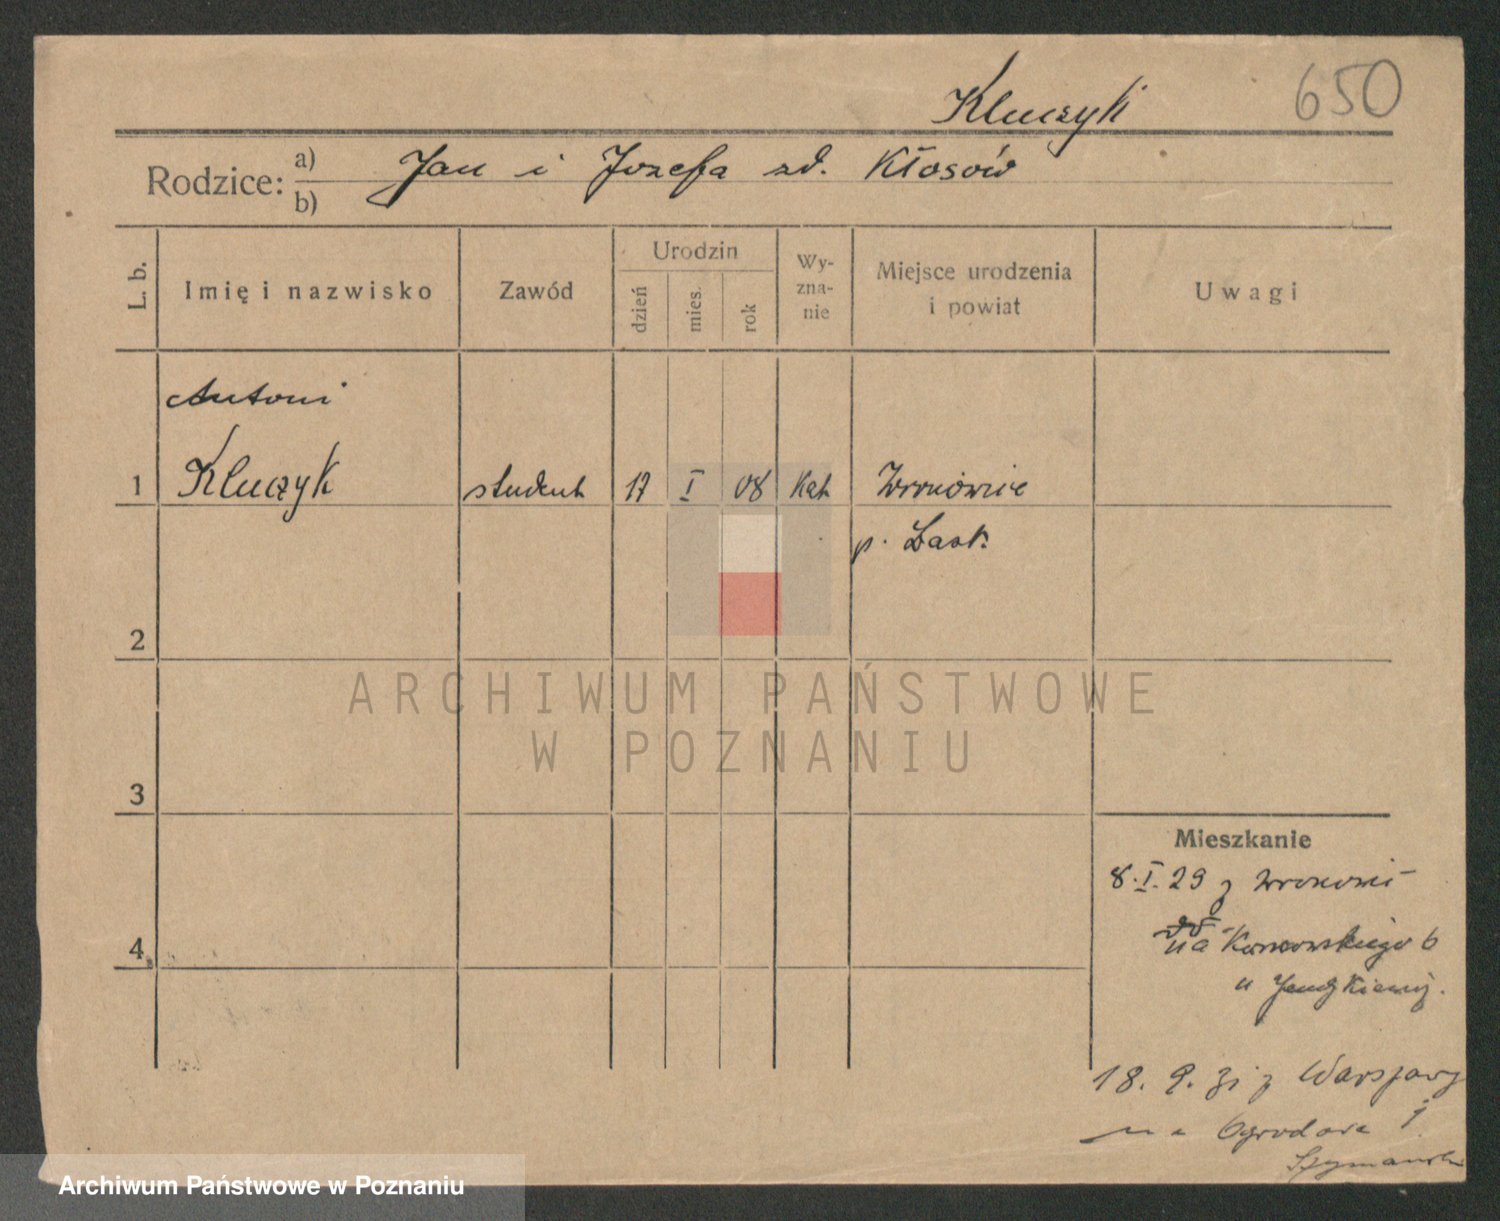 Kluczyk 650
Rodzice: a) Jan i Józefa zd. Kłosów
b)
L. b. Imię i nazwisko Zawód Urodzin dzień mies. rok Wyznanie Miejsce urodzenia i powiat Uwagi
Antoni
1 Kluczyk student 17 I 08 kat Wronowice
p. Łask.
2
ARCHIWUM PAŃSTWOWE
W POZNANIU
3
Mieszkanie
8.I.29 z Wronowic
4 na 6
u
18. 9. 31 z Warszawy
na Ogrodowa 1
Szymański
Archiwum Państwowe w Poznaniu